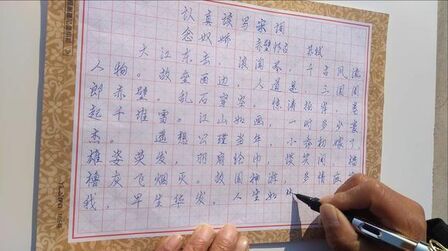 认真读写宋词
念奴娇
赤壁怀古 苏轼
大江东去，浪淘尽，千古风流
人物。故垒西边，人道是，三国周
郎赤壁。乱石穿空，惊涛拍岸，卷
起千堆雪。江山如画，一时多少豪
杰。遥想公瑾当年，小乔初嫁了，
雄姿英发，羽扇纶巾，谈笑间，樯
橹灰飞烟灭。故国神游，多情应笑
我，早生华发。人生如